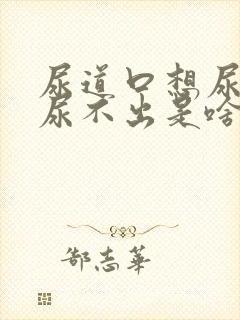 尿道口想尿
尿不出是啥
郜志華